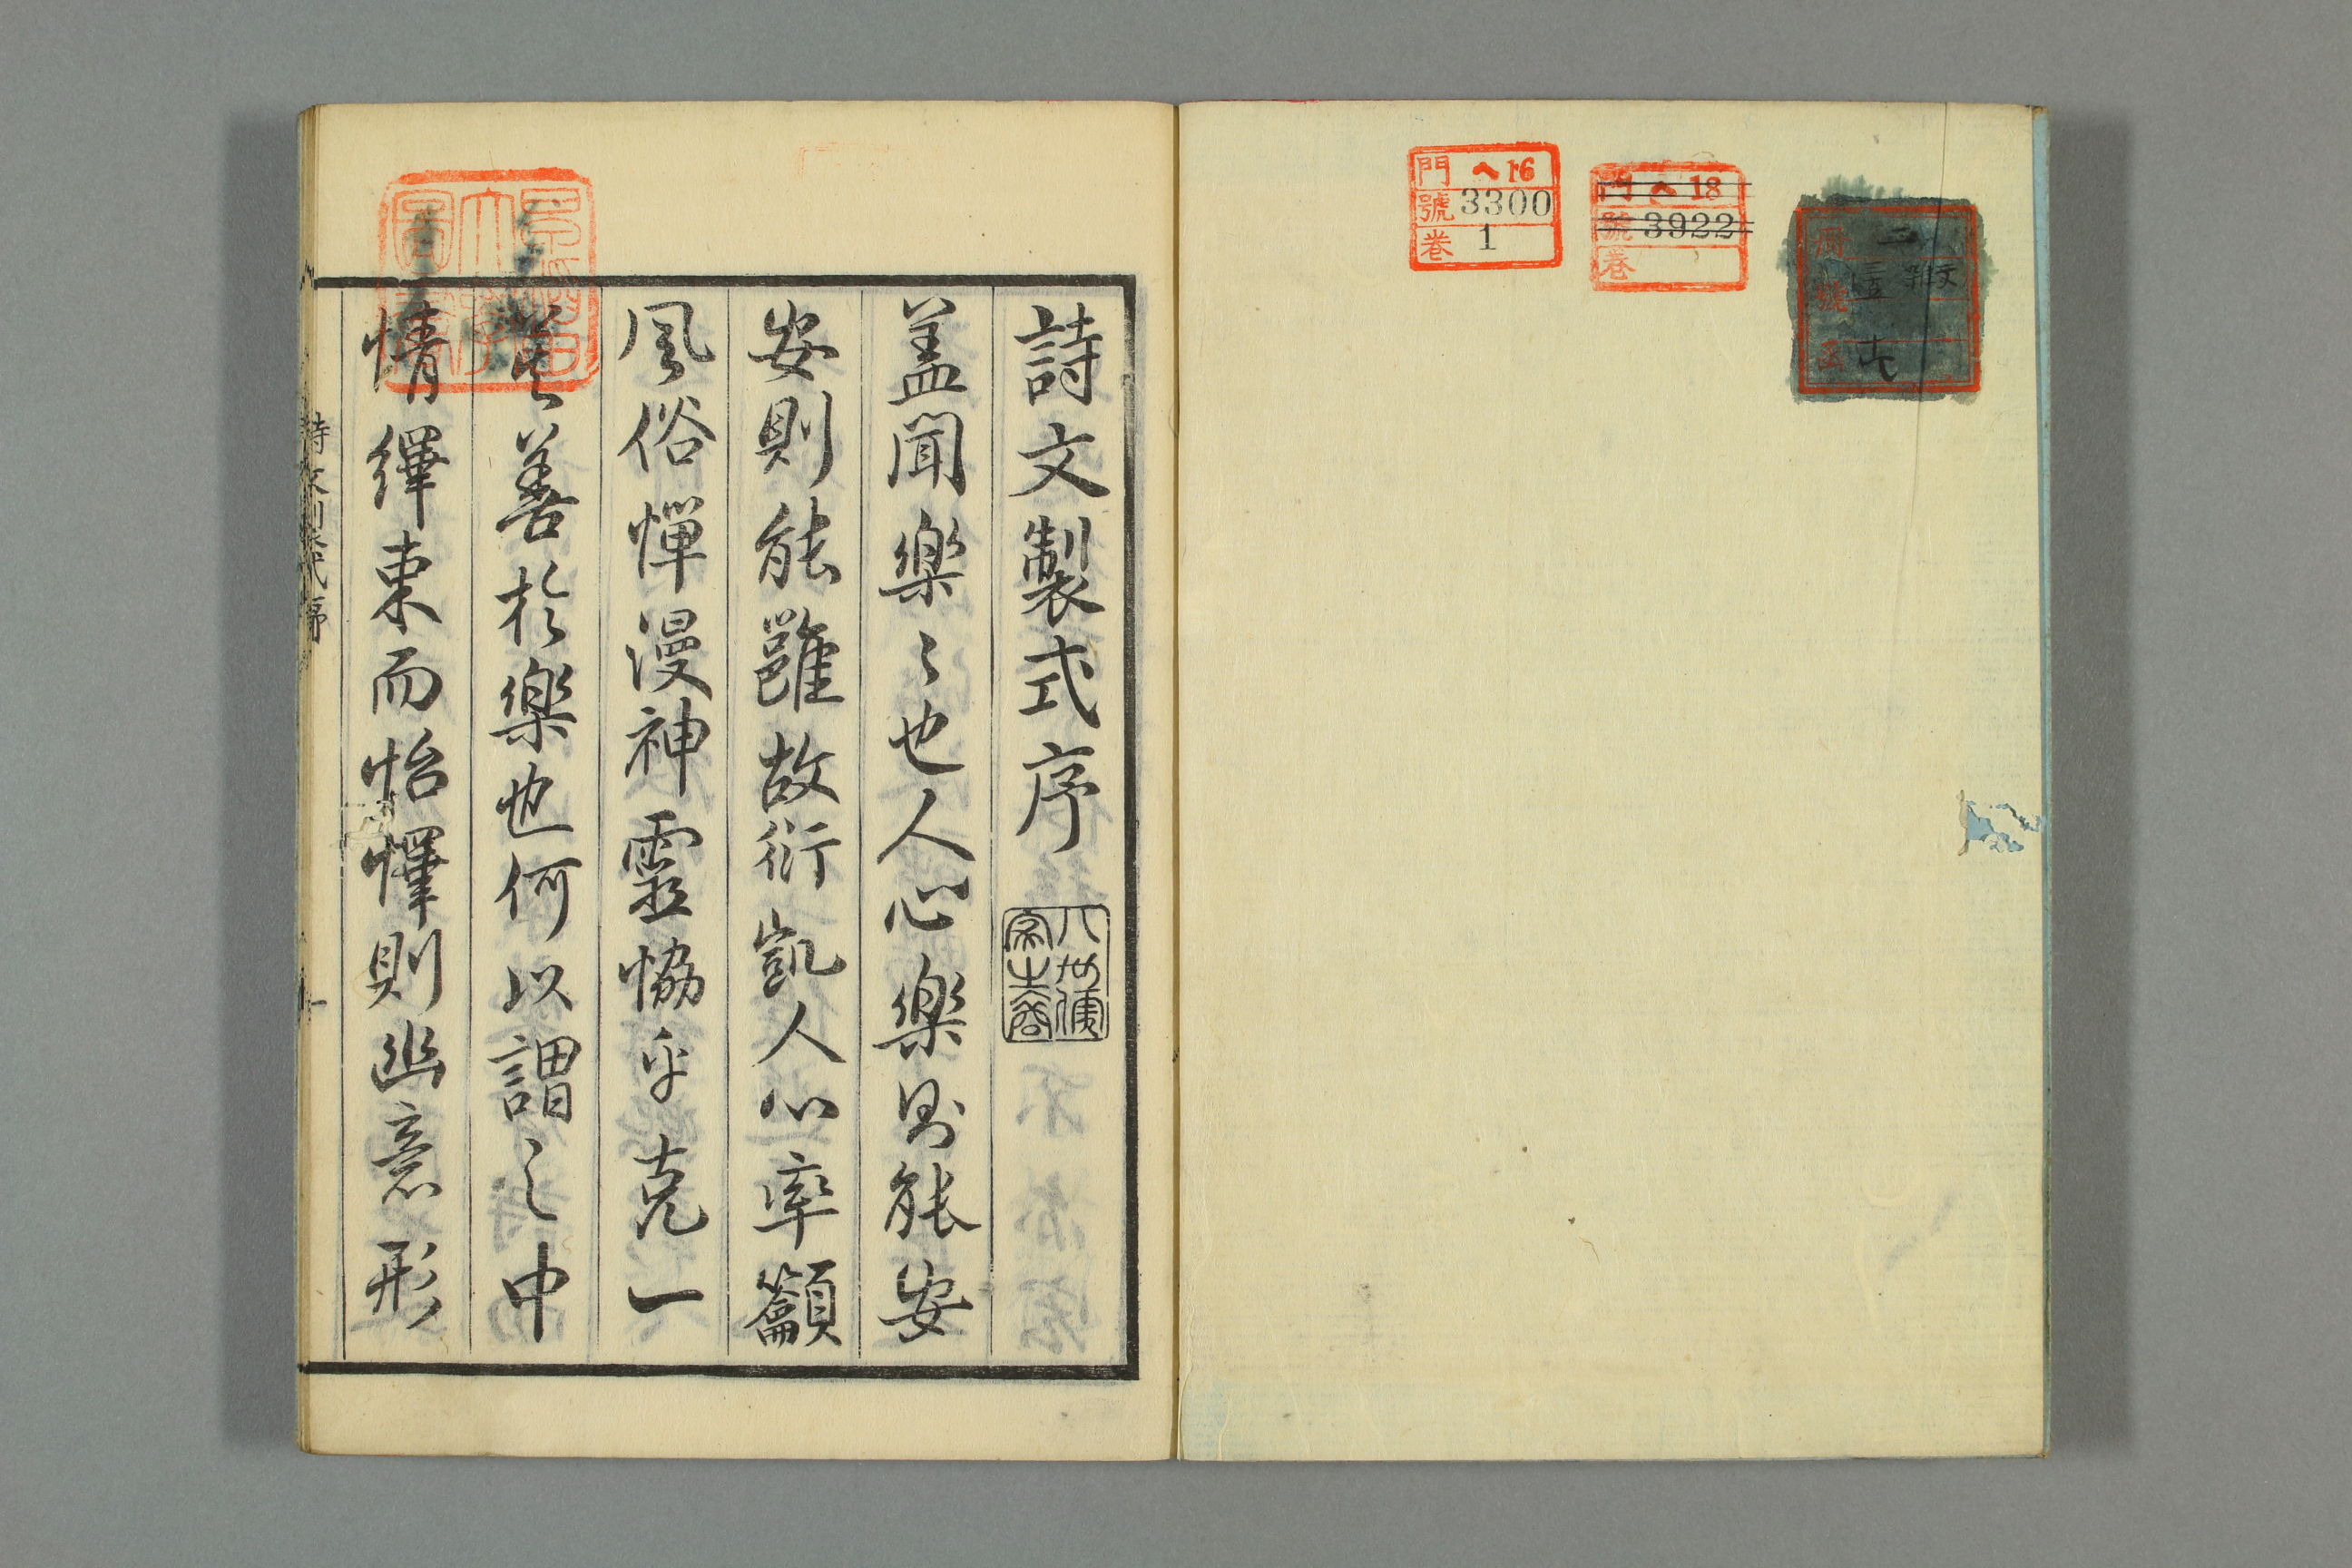 門 ヘ 16
號 3300
巻 1
門 ヘ 18
號 3922
巻
冊 二
號
函
詩文製式序
蓋聞樂〻也人心樂則能安
安則能雖故衍凱人心率籲
風俗憚漫神靈恊乎克一
善於樂也何以謂之中
情繹束而怡懌則幽意形
詩文製式序 一